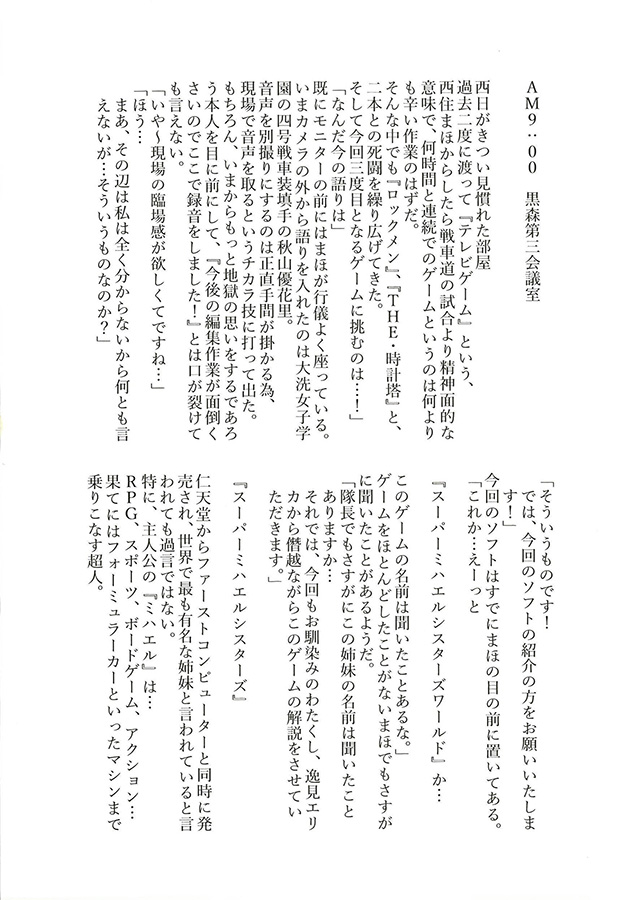 AM9:00　黒森第三会議室
西日がきつい見慣れた部屋
過去二度に渡って『テレビゲーム』という、
西住まほからしたら戦車道の試合より精神面的な
意味で、何時間と連続でのゲームというのは何より
も辛い作業のはずだ。
そんな中でも『ロックメン』、『THE・時計塔』と、
二本との死闘を繰り広げてきた。
そして今回三度目となるゲームに挑むのは…！」
「なんだ今の語りは」
既にモニターの前にはまほが行儀よく座っている。
いまカメラの外から語りを入れたのは大洗女子学
園の四号戦車装填手の秋山優花里。
音声を別撮りにするのは正直手間が掛かる為、
現場で音声を取るというチカラ技に打って出た。
もちろん、いまからもっと地獄の思いをするであろ
う本人を目に前にして、『今後の編集作業が面倒く
さいのでここで録音をしました！』とは口が裂けて
も言えない。
「いや～現場の臨場感が欲しくてですね…」
「ほう…
まあ、その辺は私は全く分からないから何とも言
えないが…そういうものなのか？」
「そういうものです！
では、今回のソフトの紹介の方をお願いいたしま
す！」
今回のソフトはすでにまほの目の前に置いてある。
「これか…えーっと
『スーパーミハエルシスターズワールド』か…
このゲームの名前は聞いたことあるな。」
ゲームをほとんどしたことがないまほでもさすが
に聞いたことがあるようだ。
「隊長でもさすがにこの姉妹の名前は聞いたこと
ありますか…
それでは、今回もお馴染みのわたくし、逸見エリ
カから僭越ながらこのゲームの解説をさせてい
ただきます。」
『スーパーミハエルシスターズ』
仁天堂からファーストコンピューターと同時に発
売され、世界で最も有名な姉妹と言われていると言
われても過言ではない。
特に、主人公の『ミハエル』は…
RPG、スポーツ、ボードゲーム、アクション…
果てにはフォーミュラーカーといったマシンまで
乗りこなす超人。